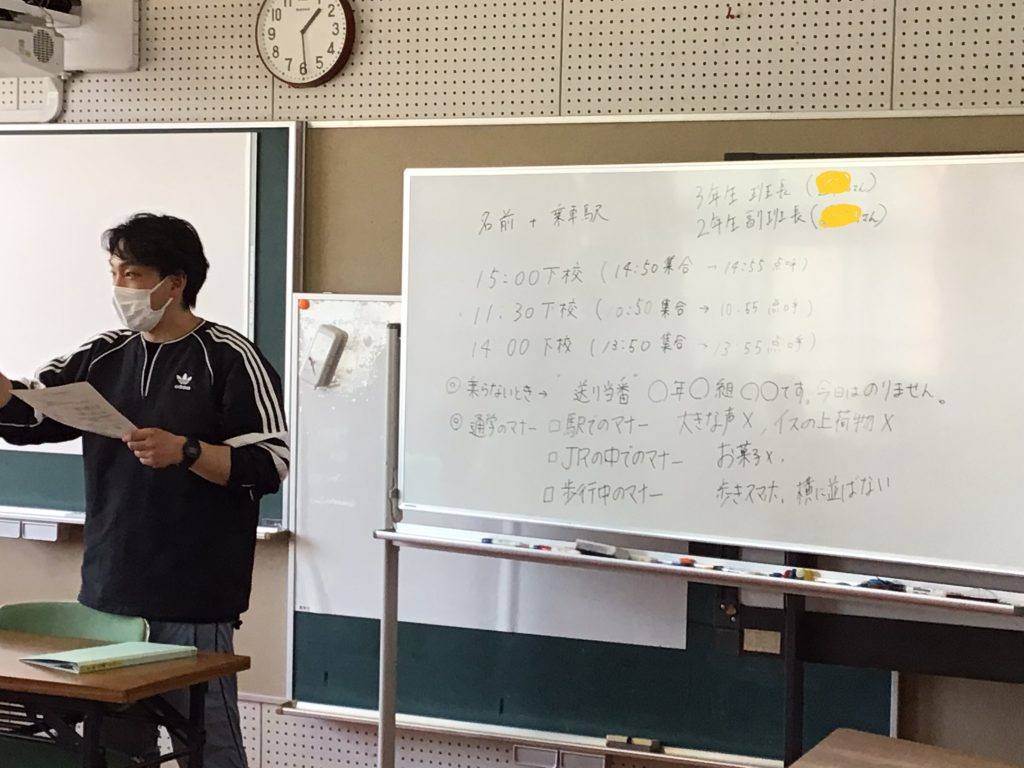 3年生 班長 (さん)
名前 + 乗車駅
2年生副班長 (さん)
15:00下校 (14:50集合 → 14:55点呼)
11:30下校 (10:50集合 → 10:55点呼)
14 00 下校 (13:50集合 → 13:55点呼)
◎ 乗らないとき→ "送り当番" ○年○組 ○○です。今日はのりません。
◎ 通学のマナー □駅でのマナー 大きな声×, イスの上荷物×
□JRの中でのマナー お菓子×.
□歩行中のマナー 歩きスマホ, 横に並ばない
adidas
12 1 2 3 4 5 6 7 8 9 10 11